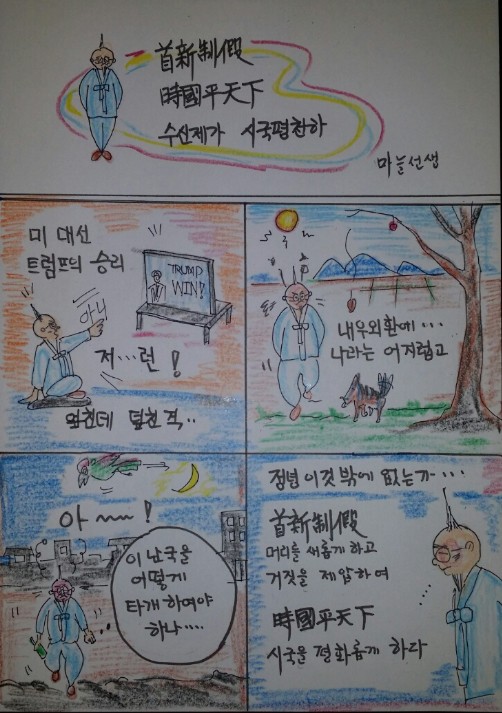 首新制假
時國平天下
수신제가 시국평천하
마늘선생
미 대선
트럼프의 승리
TRUMP
WIN!
아니
저...런!
엎친데 덮친 격..
내우외환에...
나라는 어지럽고
아~~!
이 난국을
어떻게
타개하여야
하나....
정녕 이것밖에 없는가...
首新制假
머리를 새롭게 하고
거짓을 제압하여
時國平天下
시국을 평화롭게 하다